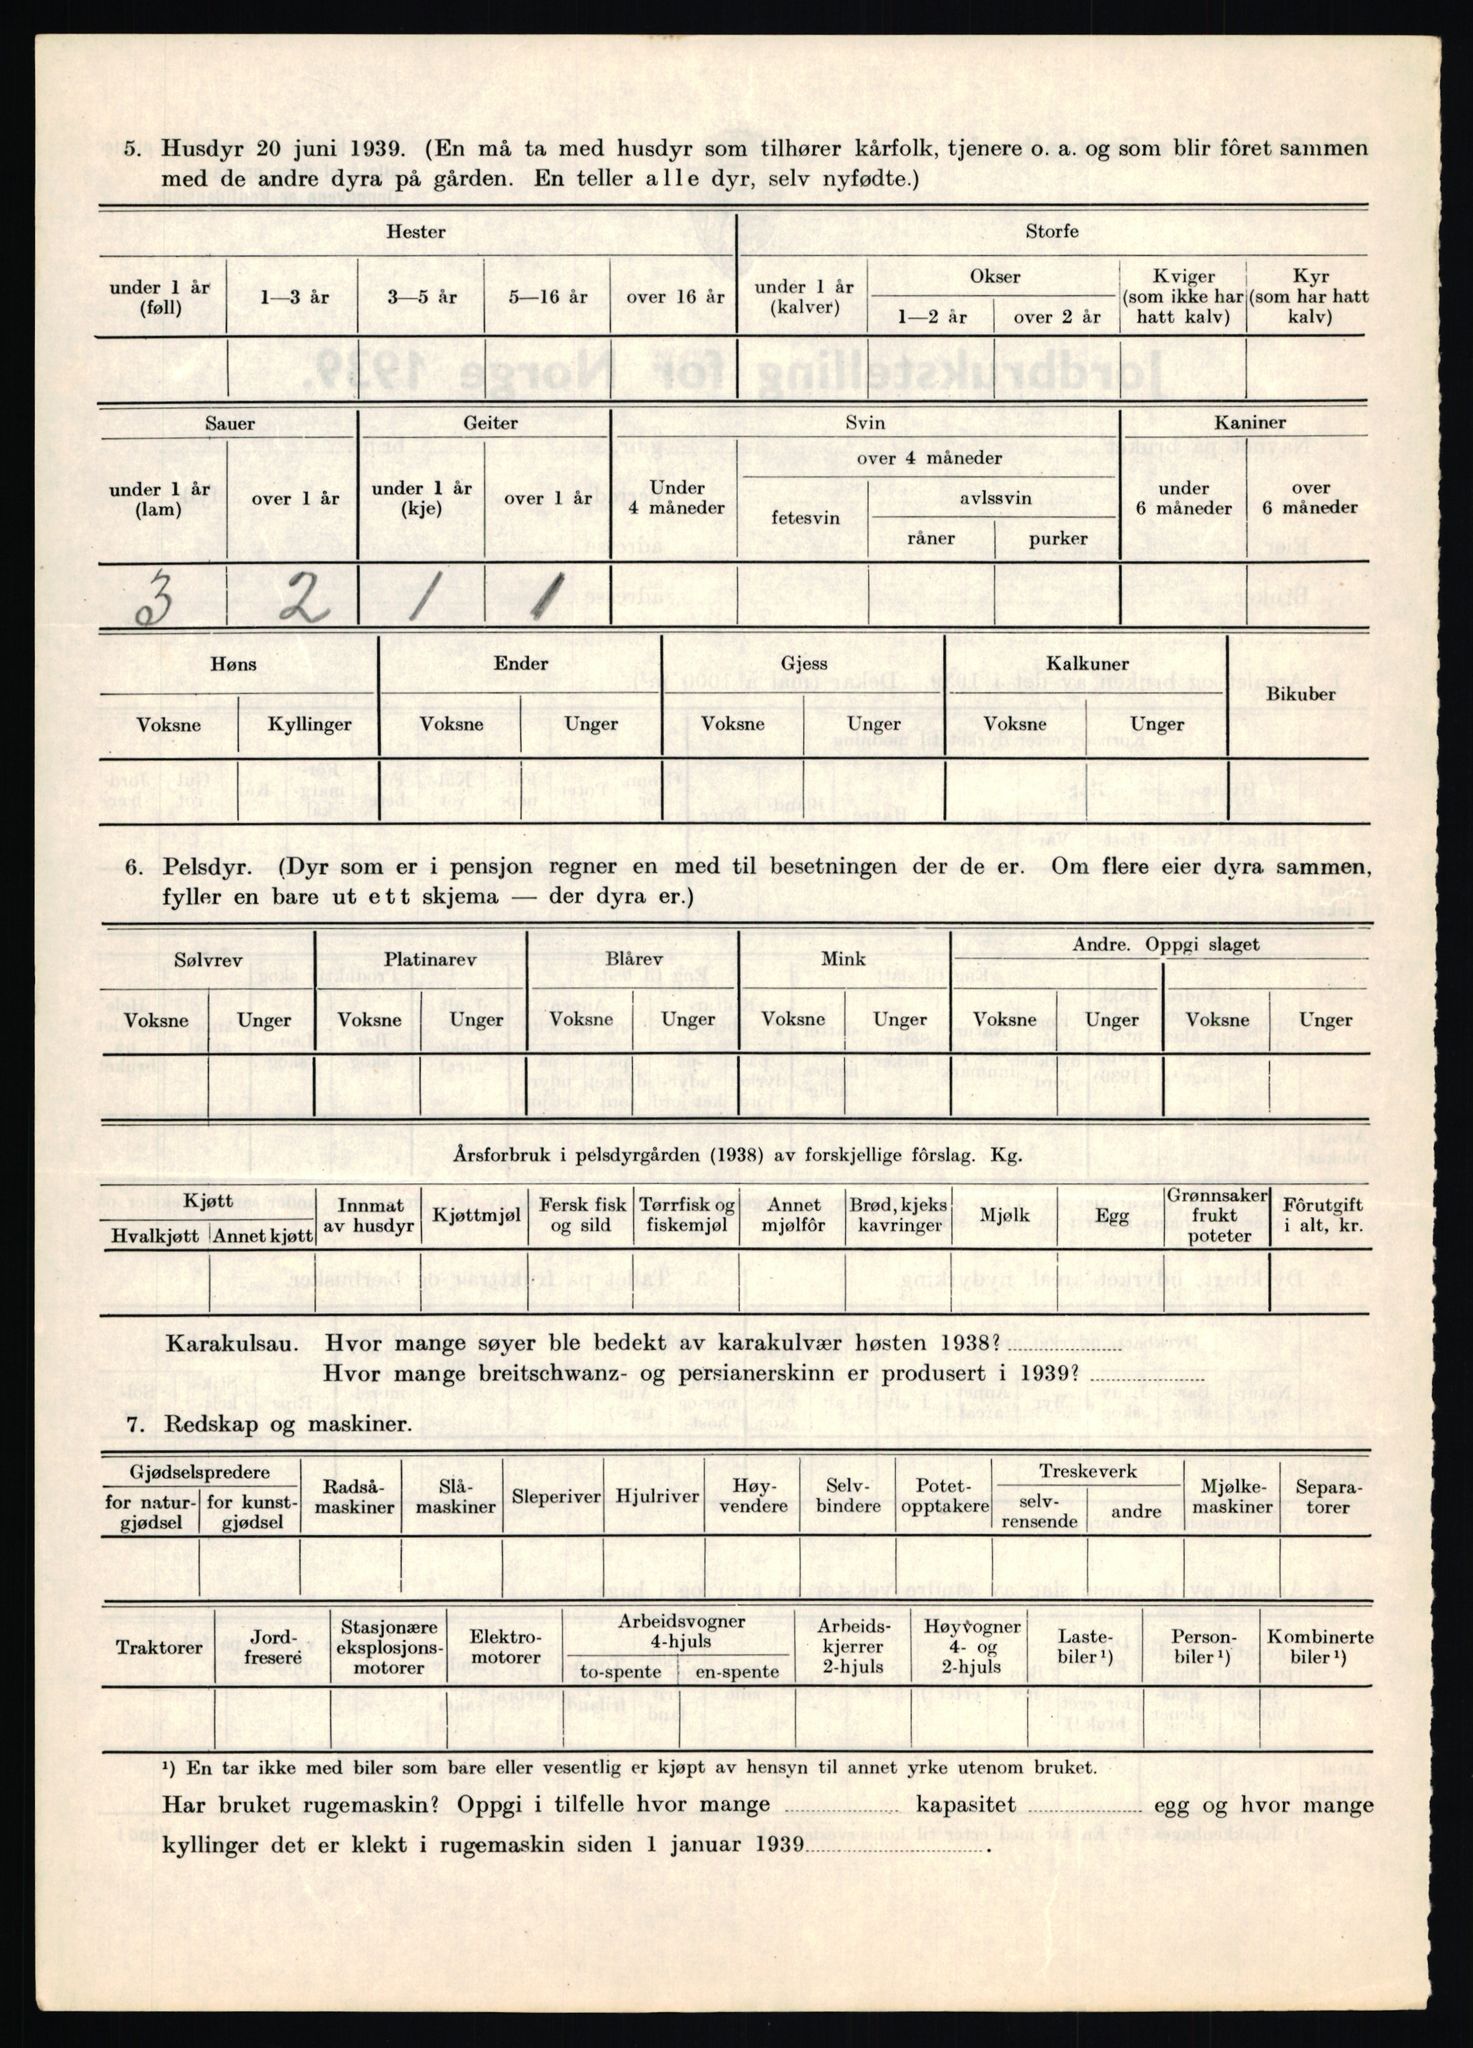 5. Husdyr 20 juni 1939. (En må ta med husdyr som tilhører kårfolk, tjenere o. a. og som blir fôret sammen
med de andre dyra på gården. En teller alle dyr, selv nyfødte.)
Hester Storfe
under 1 år (føll) 1—3 år 3—5 år 5—16 år over 16 år under 1 år (kalver) Okser 1—2 år over 2 år Kviger (som ikke har hatt kalv) Kyr (som har hatt kalv)
Sauer Geiter Svin Kaniner
under 1 år (lam) over 1 år under 1 år (kje) over 1 år Under 4 måneder over 4 måneder fetesvin avlssvin råner purker under 6 måneder over 6 måneder
3 2 1 1
Høns Ender Gjess Kalkuner Bikuber
Voksne Kyllinger Voksne Unger Voksne Unger Voksne Unger
6. Pelsdyr. (Dyr som er i pensjon regner en med til besetningen der de er. Om flere eier dyra sammen,
fyller en bare ut ett skjema — der dyra er.)
Sølvrev Platinarev Blårev Mink Andre. Oppgi slaget
Voksne Unger Voksne Unger Voksne Unger Voksne Unger Voksne Unger Voksne Unger
Årsforbruk i pelsdyrgården (1938) av forskjellige fôrslag. Kg.
Kjøtt Hvalkjøtt Annet kjøtt Innmat av husdyr Kjøttmjøl Fersk fisk og sild Tørrfisk og fiskemjøl Annet mjølfôr Brød, kjeks kavringer Mjølk Egg Grønnsaker frukt poteter Fôrutgift i alt, kr.
Karakulsau. Hvor mange søyer ble bedekt av karakulvær høsten 1938?
Hvor mange breitschwanz- og persianerskinn er produsert i 1939?
7. Redskap og maskiner.
Gjødselspredere for natur-gjødsel for kunst-gjødsel Radså-maskiner Slå-maskiner Sleperiver Hjulriver Høy-vendere Selv-bindere Potet-opptakere Treskeverk selv-rensende andre Mjølke-maskiner Separa-torer
Traktorer Jord-fresere Stasjonære eksplosjons-motorer Elektro-motorer Arbeidsvogner 4-hjuls to-spente en-spente Arbeids-kjerrer 2-hjuls Høyvogner 4- og 2-hjuls Laste-biler ¹) Person-biler ¹) Kombinerte biler ¹)
¹) En tar ikke med biler som bare eller vesentlig er kjøpt av hensyn til annet yrke utenom bruket.
Har bruket rugemaskin? Oppgi i tilfelle hvor mange kapasitet egg og hvor mange
kyllinger det er klekt i rugemaskin siden 1 januar 1939 .